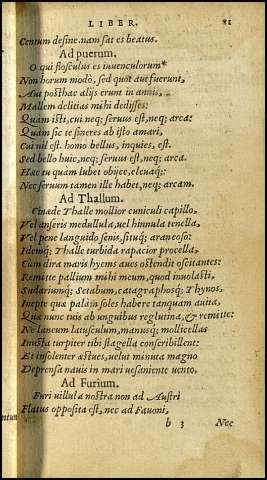 LIBER. 21
Centum desine. nam sat es beatus.
Ad puerum.
O qui flosculus es iuuenculorum
Non horum modò, sed quot aut fuerunt,
Aut posthac alijs erunt in annis,
Mallem delitias mihi dedisses:
Quàm isti, cui neq; seruus est, neq; arca:
Quàm sic te sineres ab isto amari,
Cui nil est. homo bellus, inquies, est.
Sed bello huic, neq; seruus est, neq; arca.
Hac tu quàm lubet obijce, eleuaq;:
Nec seruum tamen ille habet, neq; arcam.
Ad Thallum.
Cinæde Thalle mollior cuniculi capillo,
Vel anseris medullula, uel hinnula tenella,
Vel pene languido senis, situq; araneoso:
Idemq; Thalle turbida rapacior procella,
Cum dira maris hyems aues ostendit oscitantes:
Remitte pallium mihi meum, quod inuolasti,
Sudariumq; Setabum, catagraphosq; Thynos,
Inepte quæ palàm soles habere tanquam auita,
Quæ nunc tuis ab unguibus reglutina, & remitte:
Ne laneum latusculum, manusq; mollicellas
Inusta turpiter tibi flagella conscribillent:
Et insolenter æstues, uelut minuta magno
Deprensa nauis in mari uesaniente uento.
Ad Furium.
Furi uillula nostra non ad Austri
Flatus opposita est, nec ad Fauoni,
b 3 Nec